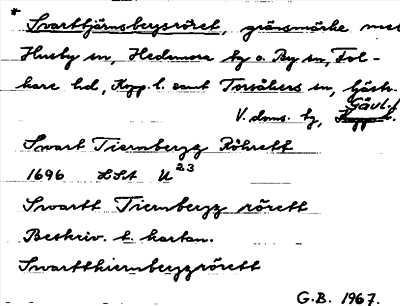 * Svarttjärnsbergsröret, gränsmärke mel
Husby sn, Hedemora by o. By sn, Fol-
kare hd, Kopp. l. samt Torsåkers sn, Gästr.
V. doms. by, Gävl. l.
Swart Tiernbergz Röhrett
1696 LSt U 23
Swartt Tiernbergz rörett
Beskriv. t. kartan.
Swartthiernbergzrörett
G.B. 1967.